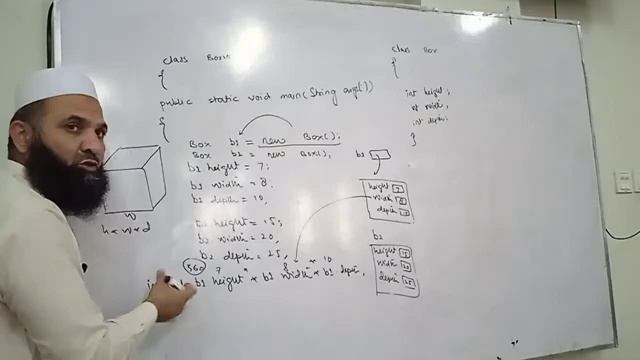 class Boxs
{
public static void main(String args[])
{
Box b1 = new Box();
Box b2 = new Box();
b1 height = 7;
b1 width = 8.
b1 depth = 10,
b2 height = 15;
b2 width = 20,
b2 depth = 25,
560 7 * 8 * 10
b1 height * b1 width * b1 depth,
w
h * w * d
class Box
{
int height;
int width,
int depth;
}
b1
height 7
width 8
depth 10
b2
height 15
width 20
depth 25